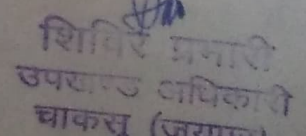 शिविर प्रभारी
उपखण्ड अधिकारी
चाकसू (जयपुर